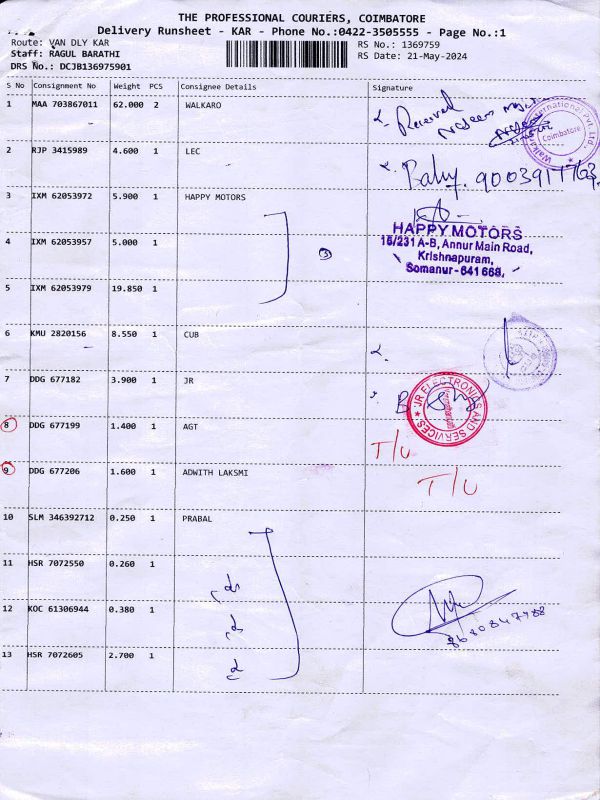 THE PROFESSIONAL COURIERS, COIMBATORE
Delivery Runsheet - KAR - Phone No.:0422-3505555 - Page No.:1
Route: VAN DLY KAR
RS No.: 1369759
Staff: RAGUL BARATHI
RS Date: 21-May-2024
DRS No.: DCJB136975901
S No Consignment No Weight PCS Consignee Details Signature
1 MAA 703867011 62.000 2 WALKARO
Received
Walkaroo International Pvt. Ltd.
Coimbatore
2 RJP 3415989 4.600 1 LEC
Baby. 9003917763
3 IXM 62053972 5.900 1 HAPPY MOTORS
HAPPY MOTORS
15/231 A-B, Annur Main Road,
Krishnapuram,
Somanur - 641 668.
4 IXM 62053957 5.000 1
3
5 IXM 62053979 19.850 1
6 KMU 2820156 8.550 1 CUB
7 DDG 677182 3.900 1 JR
JR ELECTRONICS AND SERVICES
8 DDG 677199 1.400 1 AGT
T/U
9 DDG 677206 1.600 1 ADWITH LAKSMI
T/U
10 SLM 346392712 0.250 1 PRABAL
11 HSR 7072550 0.260 1
12 KOC 61306944 0.380 1
8680847988
13 HSR 7072605 2.700 1